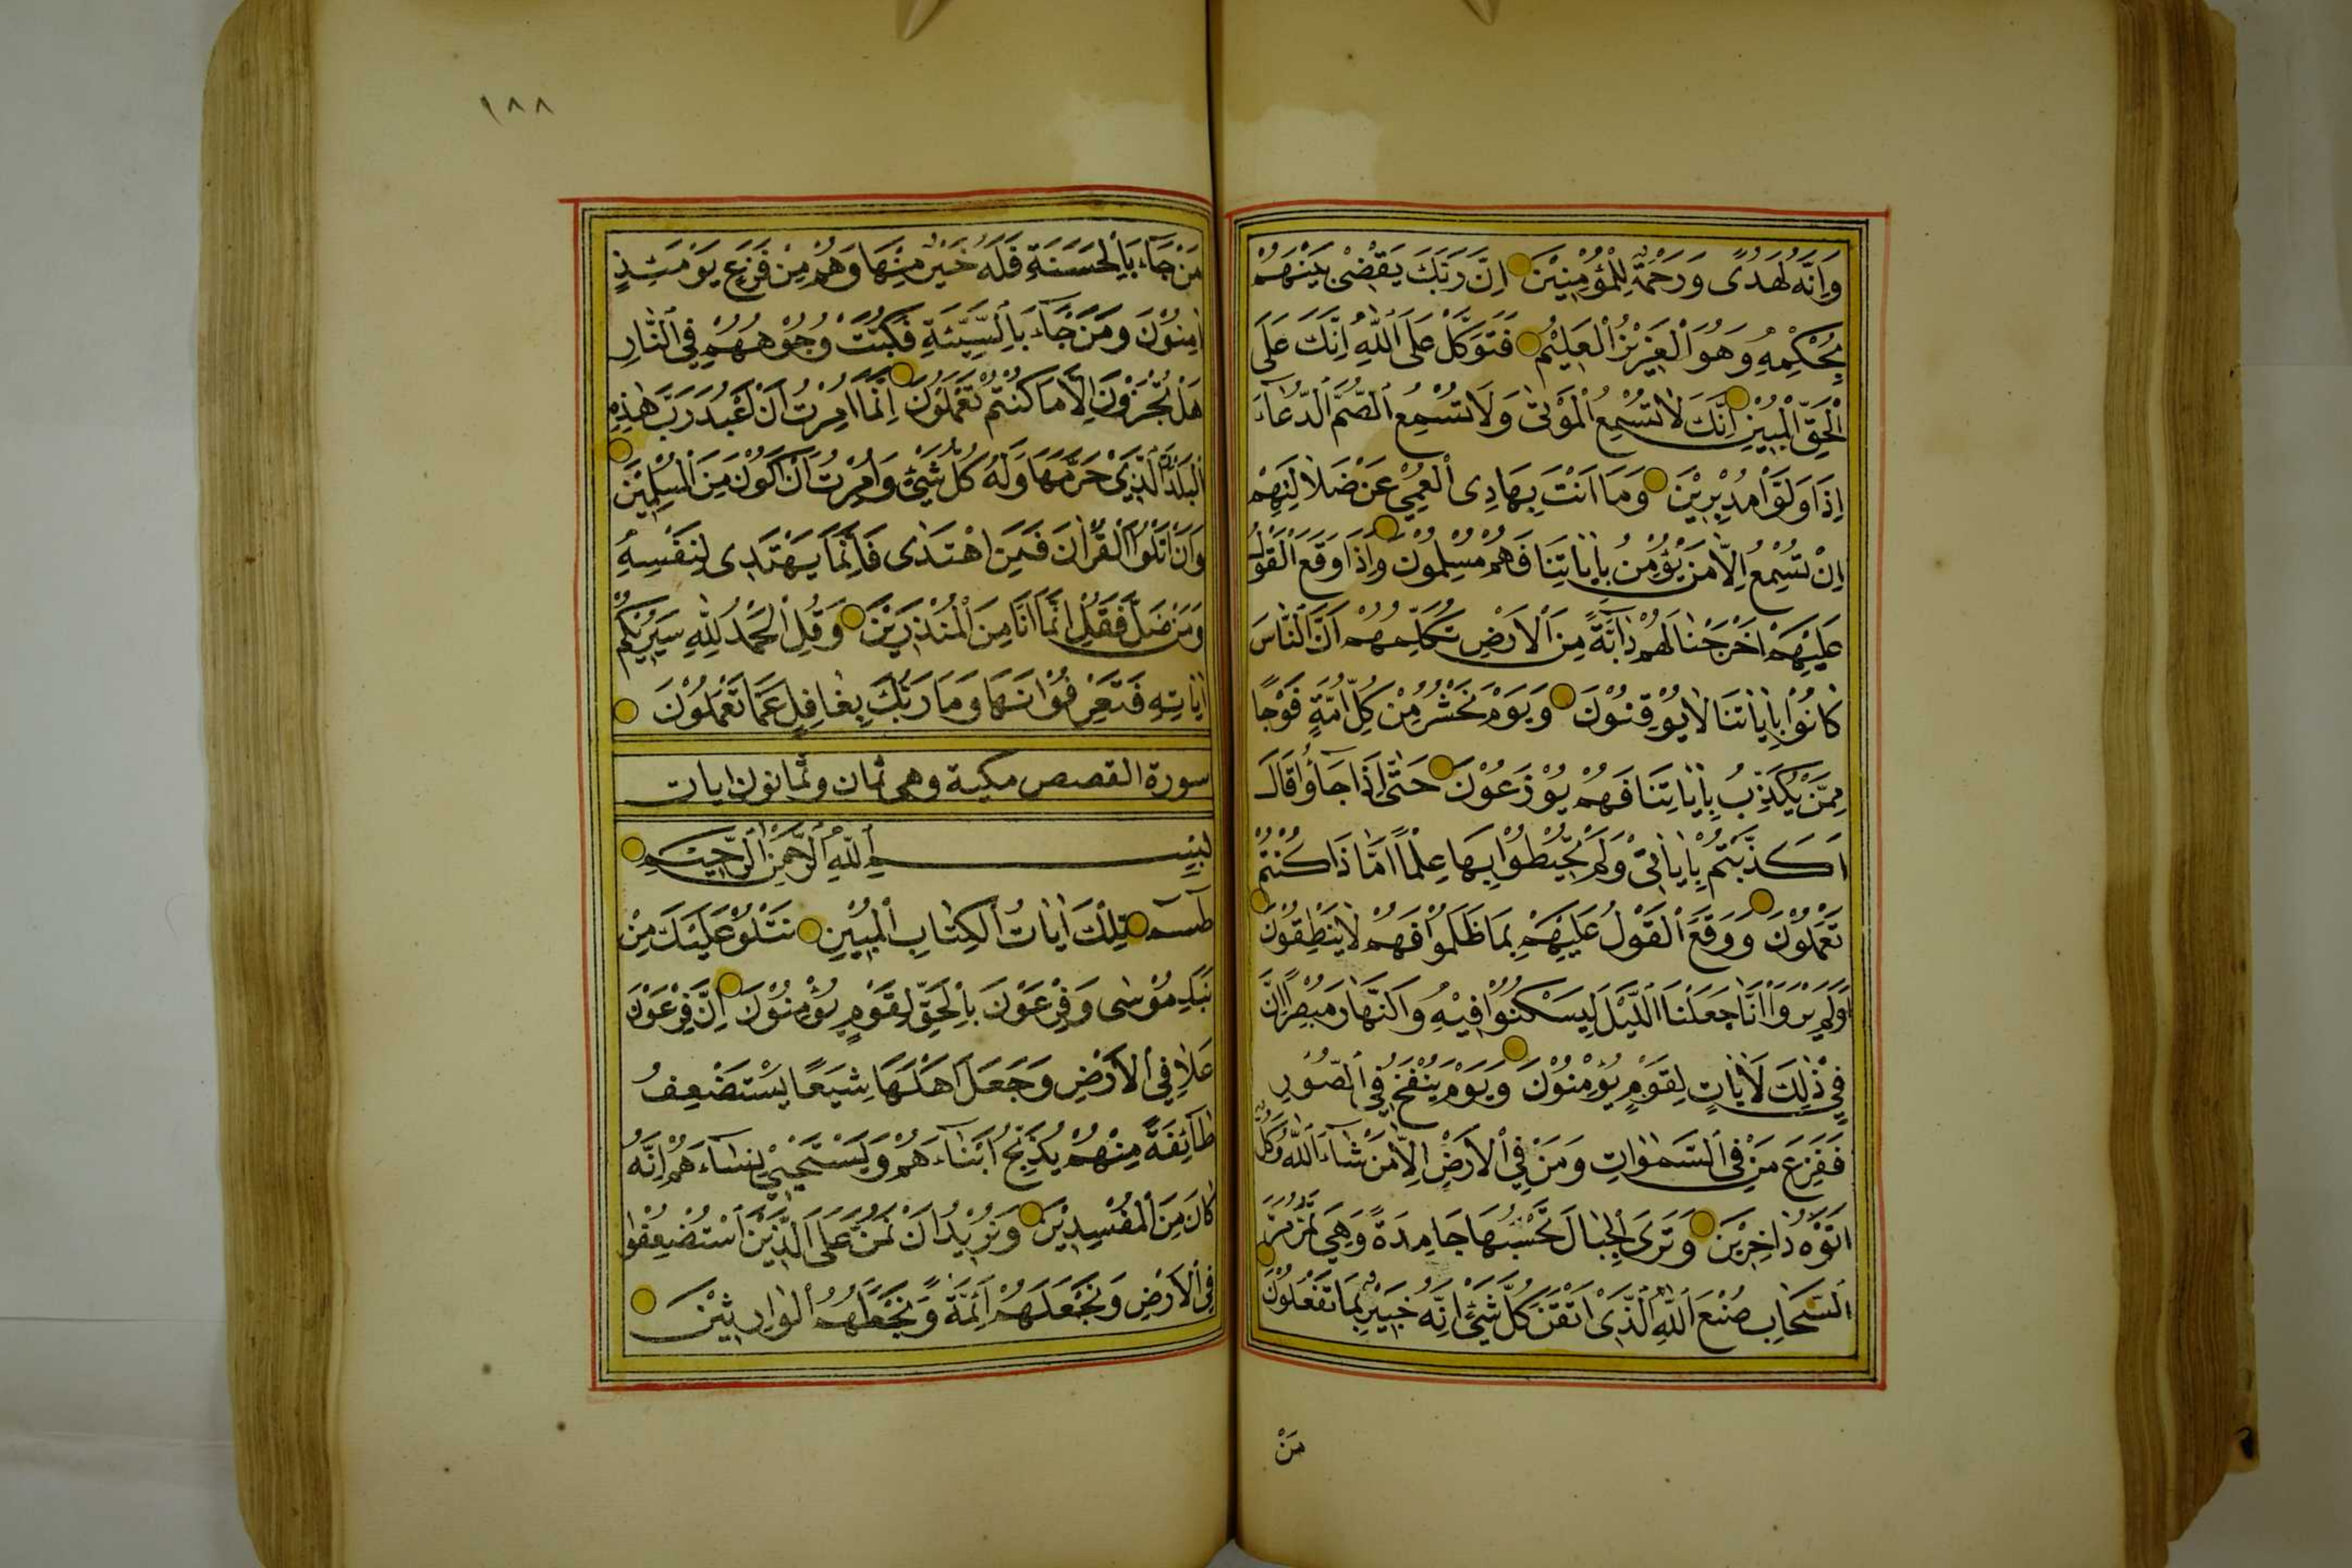 وَاِنَّهُ لَهُدًى وَرَحْمَةٌ لِلْمُؤْمِنِيْنَ اِنَّ رَبَّكَ يَقْضِىْ بَيْنَهُمْ
بِحُكْمِهِ وَهُوَ الْعَزِيْزُ الْعَلِيْمُ فَتَوَكَّلْ عَلَى اللّٰهِ اِنَّكَ عَلَى
الْحَقِّ الْمُبِيْنِ اِنَّكَ لَا تُسْمِعُ الْمَوْتٰى وَلَا تُسْمِعُ الصُّمَّ الدُّعَآءَ
اِذَا وَلَّوْا مُدْبِرِيْنَ وَمَا اَنْتَ بِهَادِى الْعُمْىِ عَنْ ضَلَالَتِهِمْ
اِنْ تُسْمِعُ اِلَّا مَنْ يُؤْمِنُ بِاٰيَاتِنَا فَهُمْ مُسْلِمُوْنَ وَاِذَا وَقَعَ الْقَوْلُ
عَلَيْهِمْ اَخْرَجْنَا لَهُمْ دَآبَّةً مِنَ الْاَرْضِ تُكَلِّمُهُمْ اَنَّ النَّاسَ
كَانُوْا بِاٰيَاتِنَا لَا يُوْقِنُوْنَ وَيَوْمَ نَحْشُرُ مِنْ كُلِّ اُمَّةٍ فَوْجًا
مِمَّنْ يُكَذِّبُ بِاٰيَاتِنَا فَهُمْ يُوْزَعُوْنَ حَتّٰى اِذَا جَآؤُا قَالَ
اَكَذَّبْتُمْ بِاٰيَاتِىْ وَلَمْ تُحِيْطُوْا بِهَا عِلْمًا اَمَّا ذَا كُنْتُمْ
تَعْمَلُوْنَ وَوَقَعَ الْقَوْلُ عَلَيْهِمْ بِمَا ظَلَمُوْا فَهُمْ لَا يَنْطِقُوْنَ
اَوَلَمْ يَرَوْا اَنَّا جَعَلْنَا اللَّيْلَ لِيَسْكُنُوْا فِيْهِ وَالنَّهَارَ مُبْصِرًا اِنَّ
فِىْ ذٰلِكَ لَاٰيَاتٍ لِقَوْمٍ يُؤْمِنُوْنَ وَيَوْمَ يُنْفَخُ فِى الصُّوْرِ
فَفَزِعَ مَنْ فِى السَّمٰوَاتِ وَمَنْ فِى الْاَرْضِ اِلَّا مَنْ شَآءَ اللّٰهُ وَكُلٌّ
اَتَوْهُ دَاخِرِيْنَ وَتَرَى الْجِبَالَ تَحْسَبُهَا جَامِدَةً وَهِىَ تَمُرُّ مَرَّ
السَّحَابِ صُنْعَ اللّٰهِ الَّذِىْ اَتْقَنَ كُلَّ شَىْءٍ اِنَّهُ خَبِيْرٌ بِمَا تَفْعَلُوْنَ
مَنْ
١٨٨
مَنْ جَآءَ بِالْحَسَنَةِ فَلَهُ خَيْرٌ مِنْهَا وَهُمْ مِنْ فَزَعٍ يَوْمَئِذٍ
اٰمِنُوْنَ وَمَنْ جَآءَ بِالسَّيِّئَةِ فَكُبَّتْ وُجُوْهُهُمْ فِى النَّارِ
هَلْ تُجْزَوْنَ اِلَّا مَا كُنْتُمْ تَعْمَلُوْنَ اِنَّمَا اُمِرْتُ اَنْ اَعْبُدَ رَبَّ هٰذِهِ
الْبَلْدَةِ الَّذِىْ حَرَّمَهَا وَلَهُ كُلُّ شَىْءٍ وَاُمِرْتُ اَنْ اَكُوْنَ مِنَ الْمُسْلِمِيْنَ
وَاَنْ اَتْلُوَا الْقُرْاٰنَ فَمَنِ اهْتَدٰى فَاِنَّمَا يَهْتَدِى لِنَفْسِهِ
وَمَنْ ضَلَّ فَقُلْ اِنَّمَا اَنَا مِنَ الْمُنْذِرِيْنَ وَقُلِ الْحَمْدُ لِلّٰهِ سَيُرِيْكُمْ
اٰيَاتِهِ فَتَعْرِفُوْنَهَا وَمَا رَبُّكَ بِغَافِلٍ عَمَّا تَعْمَلُوْنَ
سورة القصص مكية وهى ثمان وثمانون ايات
بِسْمِ اللّٰهِ الرَّحْمٰنِ الرَّحِيْمِ
طٰسٓمٓ تِلْكَ اٰيَاتُ الْكِتَابِ الْمُبِيْنِ نَتْلُوْ عَلَيْكَ مِنْ
نَبَاِ مُوْسٰى وَفِرْعَوْنَ بِالْحَقِّ لِقَوْمٍ يُؤْمِنُوْنَ اِنَّ فِرْعَوْنَ
عَلَا فِى الْاَرْضِ وَجَعَلَ اَهْلَهَا شِيَعًا يَسْتَضْعِفُ
طَآئِفَةً مِنْهُمْ يُذَبِّحُ اَبْنَآءَهُمْ وَيَسْتَحْيِىْ نِسَآءَهُمْ اِنَّهُ
كَانَ مِنَ الْمُفْسِدِيْنَ وَنُرِيْدُ اَنْ نَمُنَّ عَلَى الَّذِيْنَ اسْتُضْعِفُوْا
فِى الْاَرْضِ وَنَجْعَلَهُمْ اَئِمَّةً وَنَجْعَلَهُمُ الْوَارِثِيْنَ